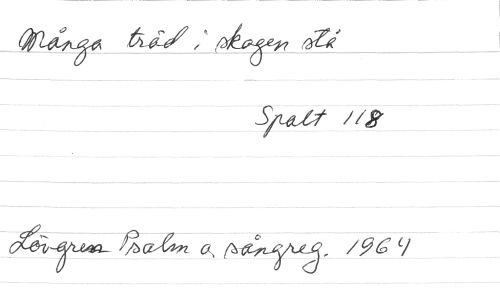 Många träd i skogen stå
Spalt 118
Lövgren Psalm o. sångreg. 1964